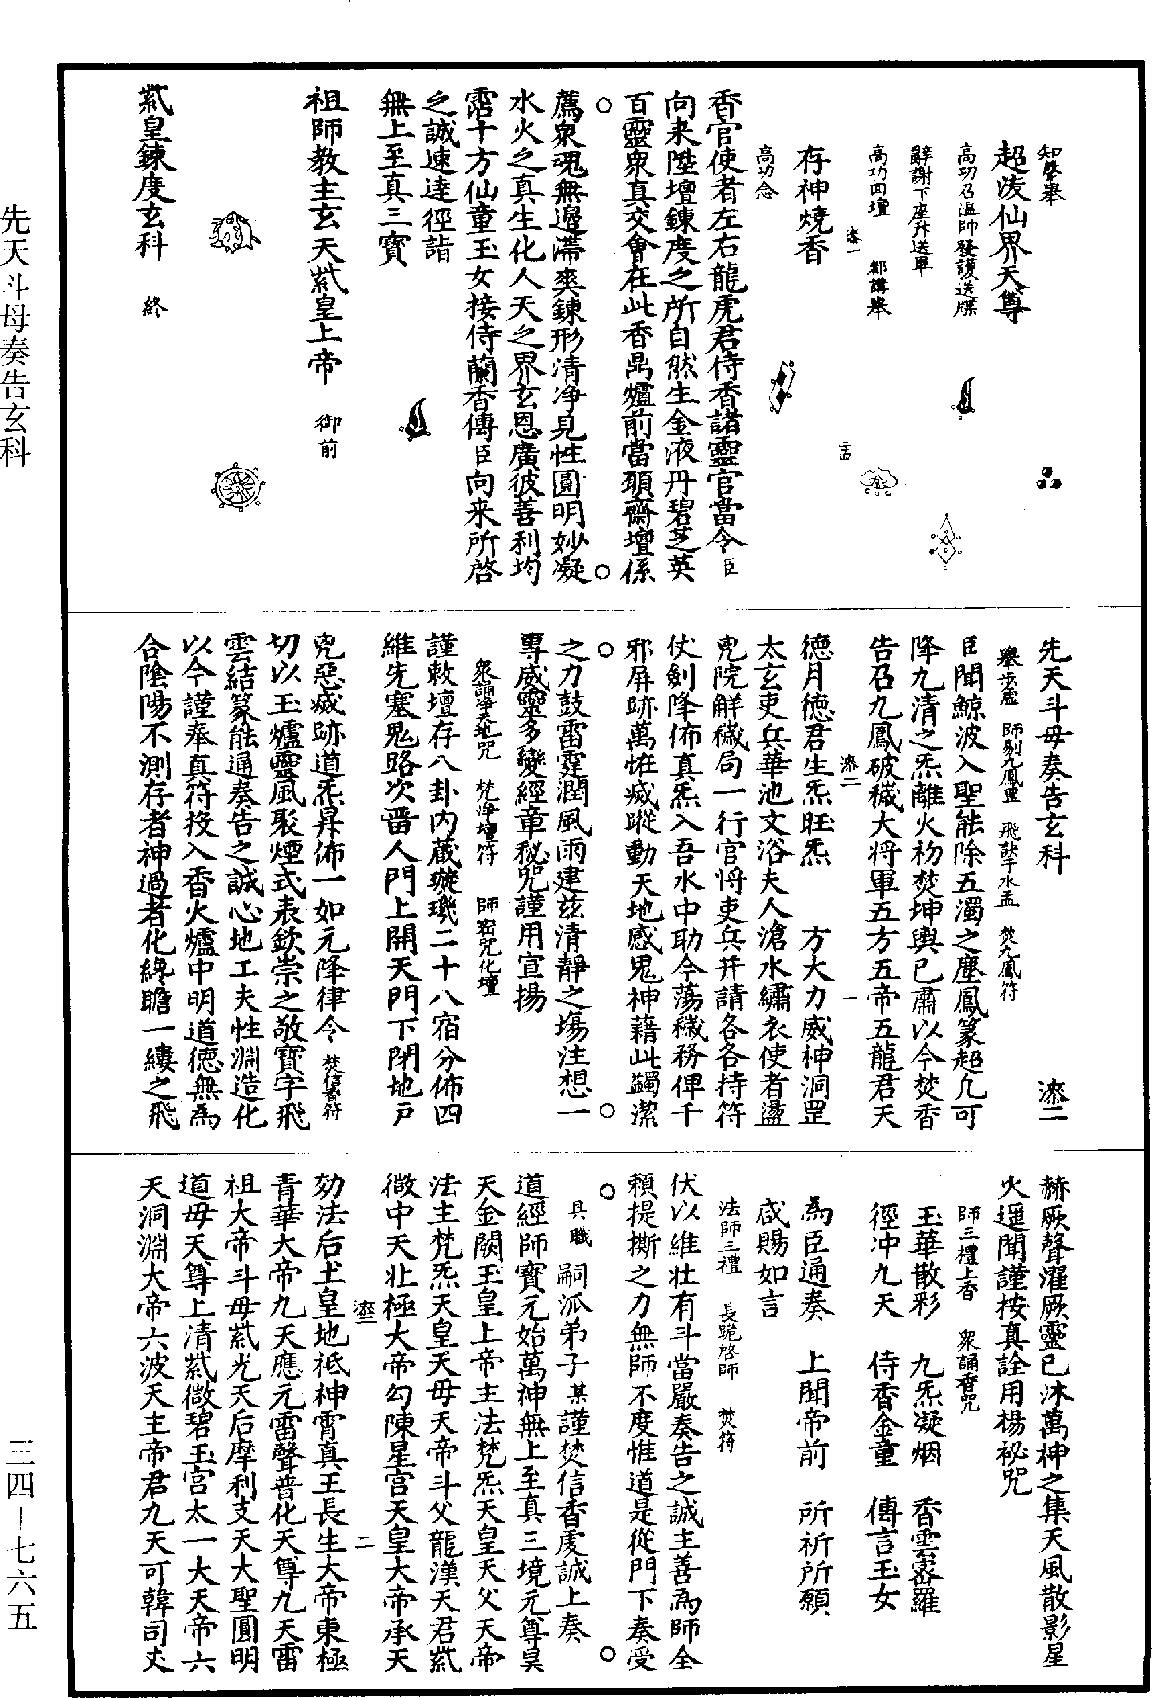 知磬舉
超淩仙界天尊
高功召溫帥發護送牒
辭謝下座升送單
高功回壇　都講舉
柰一
存神燒香
高功念
香官使者左右龍虎君侍香諸靈官當令臣
向来陞壇鍊度之所自然生金液丹碧芝英
百靈衆真交會在此香鼎爐前當願齋壇係
薦衆魂無邊滯爽鍊形清净見性圓明妙凝
水火之真生化人天之界玄恩廣彼善利均
霑十方仙童玉女接侍蘭香傳臣向来所啓
之誠速達徑詣
無上至真三寶
祖師教主玄天紫皇上帝　御前
紫皇鍊度玄科　終
先天斗母奏告玄科　柰二
舉步虛　師劄九鳳畢　飛獄于水盂　焚九鳳符
臣聞鯨波入聖能除五濁之塵鳳篆超凡可
降九清之炁離火初焚坤輿已肅以今焚香
告召九鳳破穢大將軍五方五帝五龍君天
柰二
德月德君生炁旺炁　方大力威神洞罡
太玄吏兵華池文浴夫人滄水繡衣使者盪
兇院解穢局一行官將吏兵幷請各各持符
仗劍降佈真炁入吾水中助今蕩穢務俾千
邪屏跡萬怪滅蹤動天地感鬼神藉此蠲潔
之力鼓雷霆潤風雨建玆清靜之塲注想一
專威靈多變經章秘咒謹用宣揚
衆誦天地咒　焚淨壇符　師密咒化壇
謹敕壇存八卦內蔵璇璣二十八宿分佈四
維先塞鬼路次畱人門上開天門下閉地戸
兇惡滅跡道炁昇佈一如元降律令　焚信香符
切以玉爐靈風聚煙式表欽崇之敬寶字飛
雲結篆能通奏告之誠心地工夫性淵造化
以今謹奉真符投入香火爐中明道德無為
合陰陽不測存者神過者化終瞻一縷之飛
赫厥聲濯厥靈已沐萬神之集天風散影星
火遥聞謹按真詮用楊祕咒
師三禮上香　衆誦香咒
玉華散彩　九炁凝烟　香雲密羅
徑冲九天　侍香金童　傳言玉女
為臣通奏　上聞帝前　所祈所願
咸賜如言
法師三禮　長跪啓師　焚符
伏以維壯有斗當嚴奏告之誠主善為師全
頼提撕之力無師不度惟道是從門下奏受
具職　嗣派弟子某謹焚信香虔誠上奏
道經師寶元始萬神無上至真三境元尊昊
天金闕玉皇上帝主法梵炁天皇天父天帝
法主梵炁天皇天母天帝斗父龍漢天君紫
微中天北極大帝勾陳星宫天皇大帝承天
柰三
効法后土皇地祇神霄真王長生大帝東極
青華大帝九天應元雷聲普化天尊九天雷
祖大帝斗母紫光天后摩利支天大聖圓明
道母天尊上清紫微碧玉宫太一大天帝六
天洞淵大帝六波天主帝君九天可韓司丈
先天斗母奏告玄科
三四－七六五